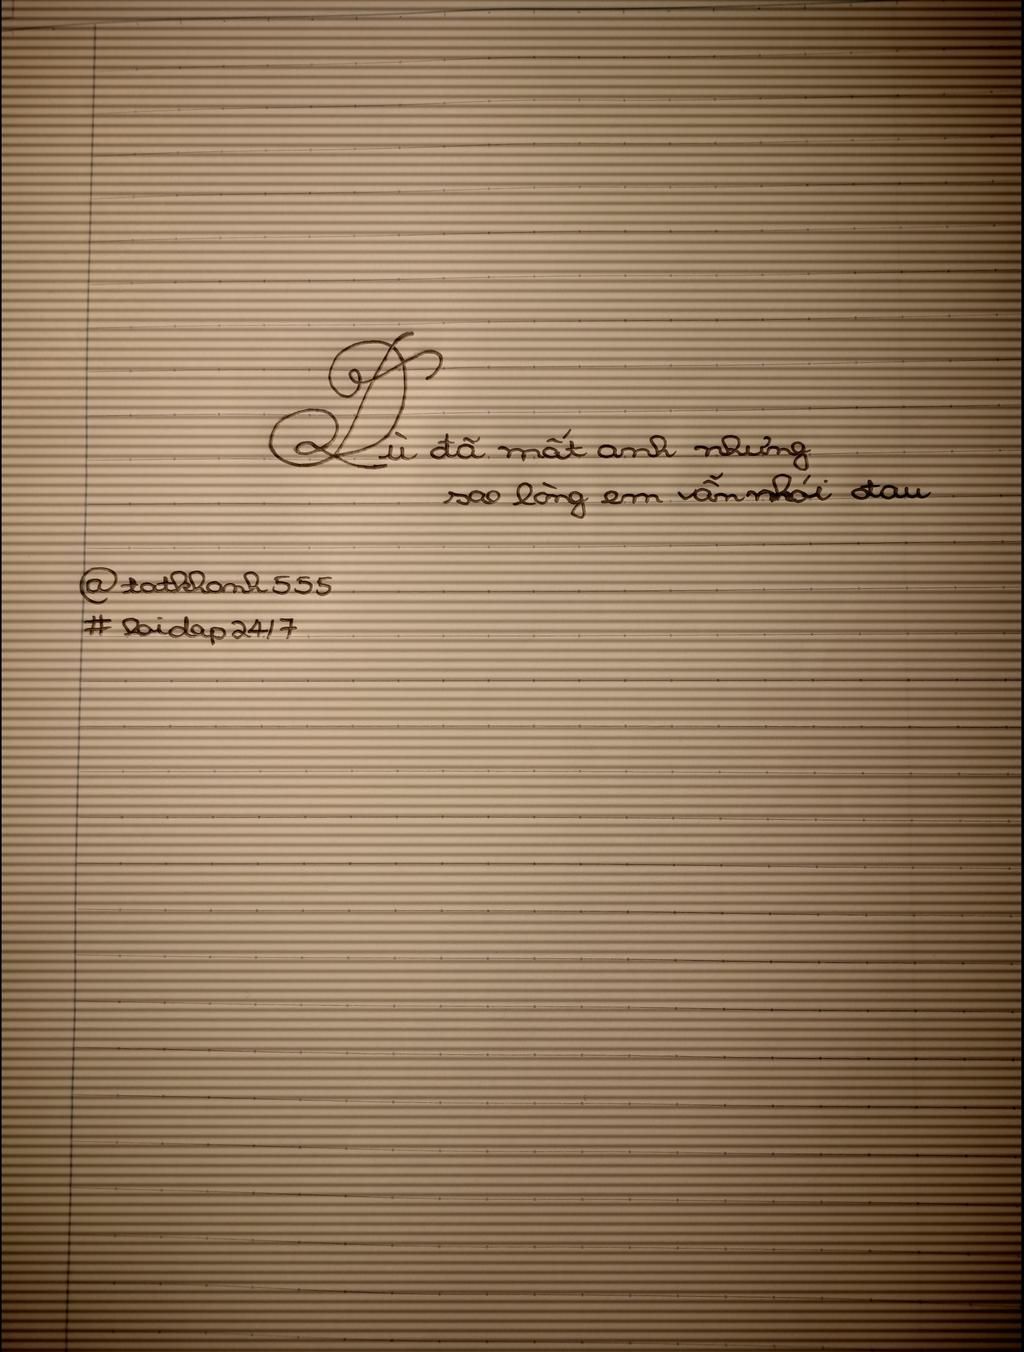 Dù đã mất anh nhưng
sao lòng em vẫn nhói đau
@totkhanh555
#loidap24/7